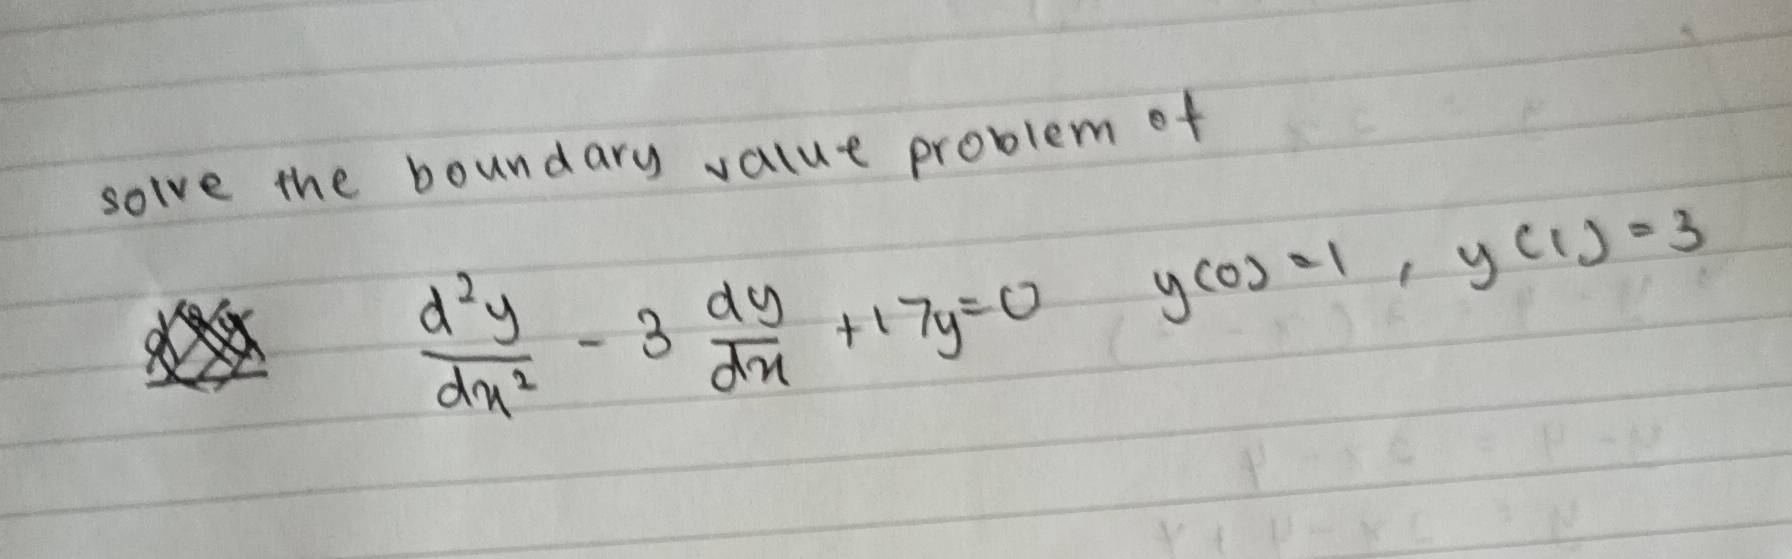 solve the boundary value problem of
d²y/dx² - 3 dy/dx + 17y = 0   y(0) = 1 , y(1) = 3